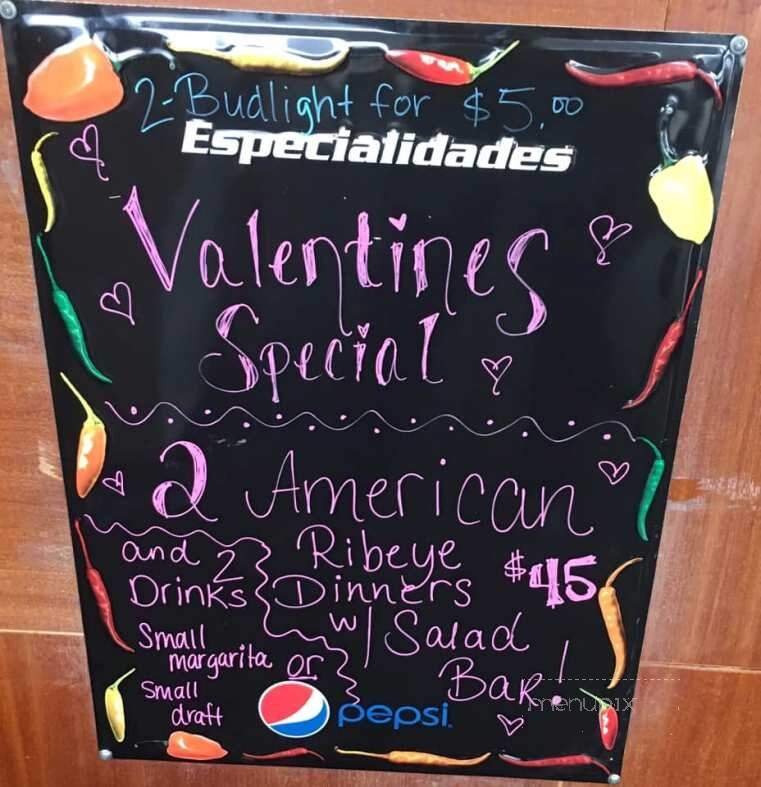 2-Budlight for $5.00
Especialidades
Valentines
Special
2 American
Ribeye
Dinners $45
w/ Salad
Bar!
and 2
Drinks
Small
margarita or
Small
draft
pepsi
menupix